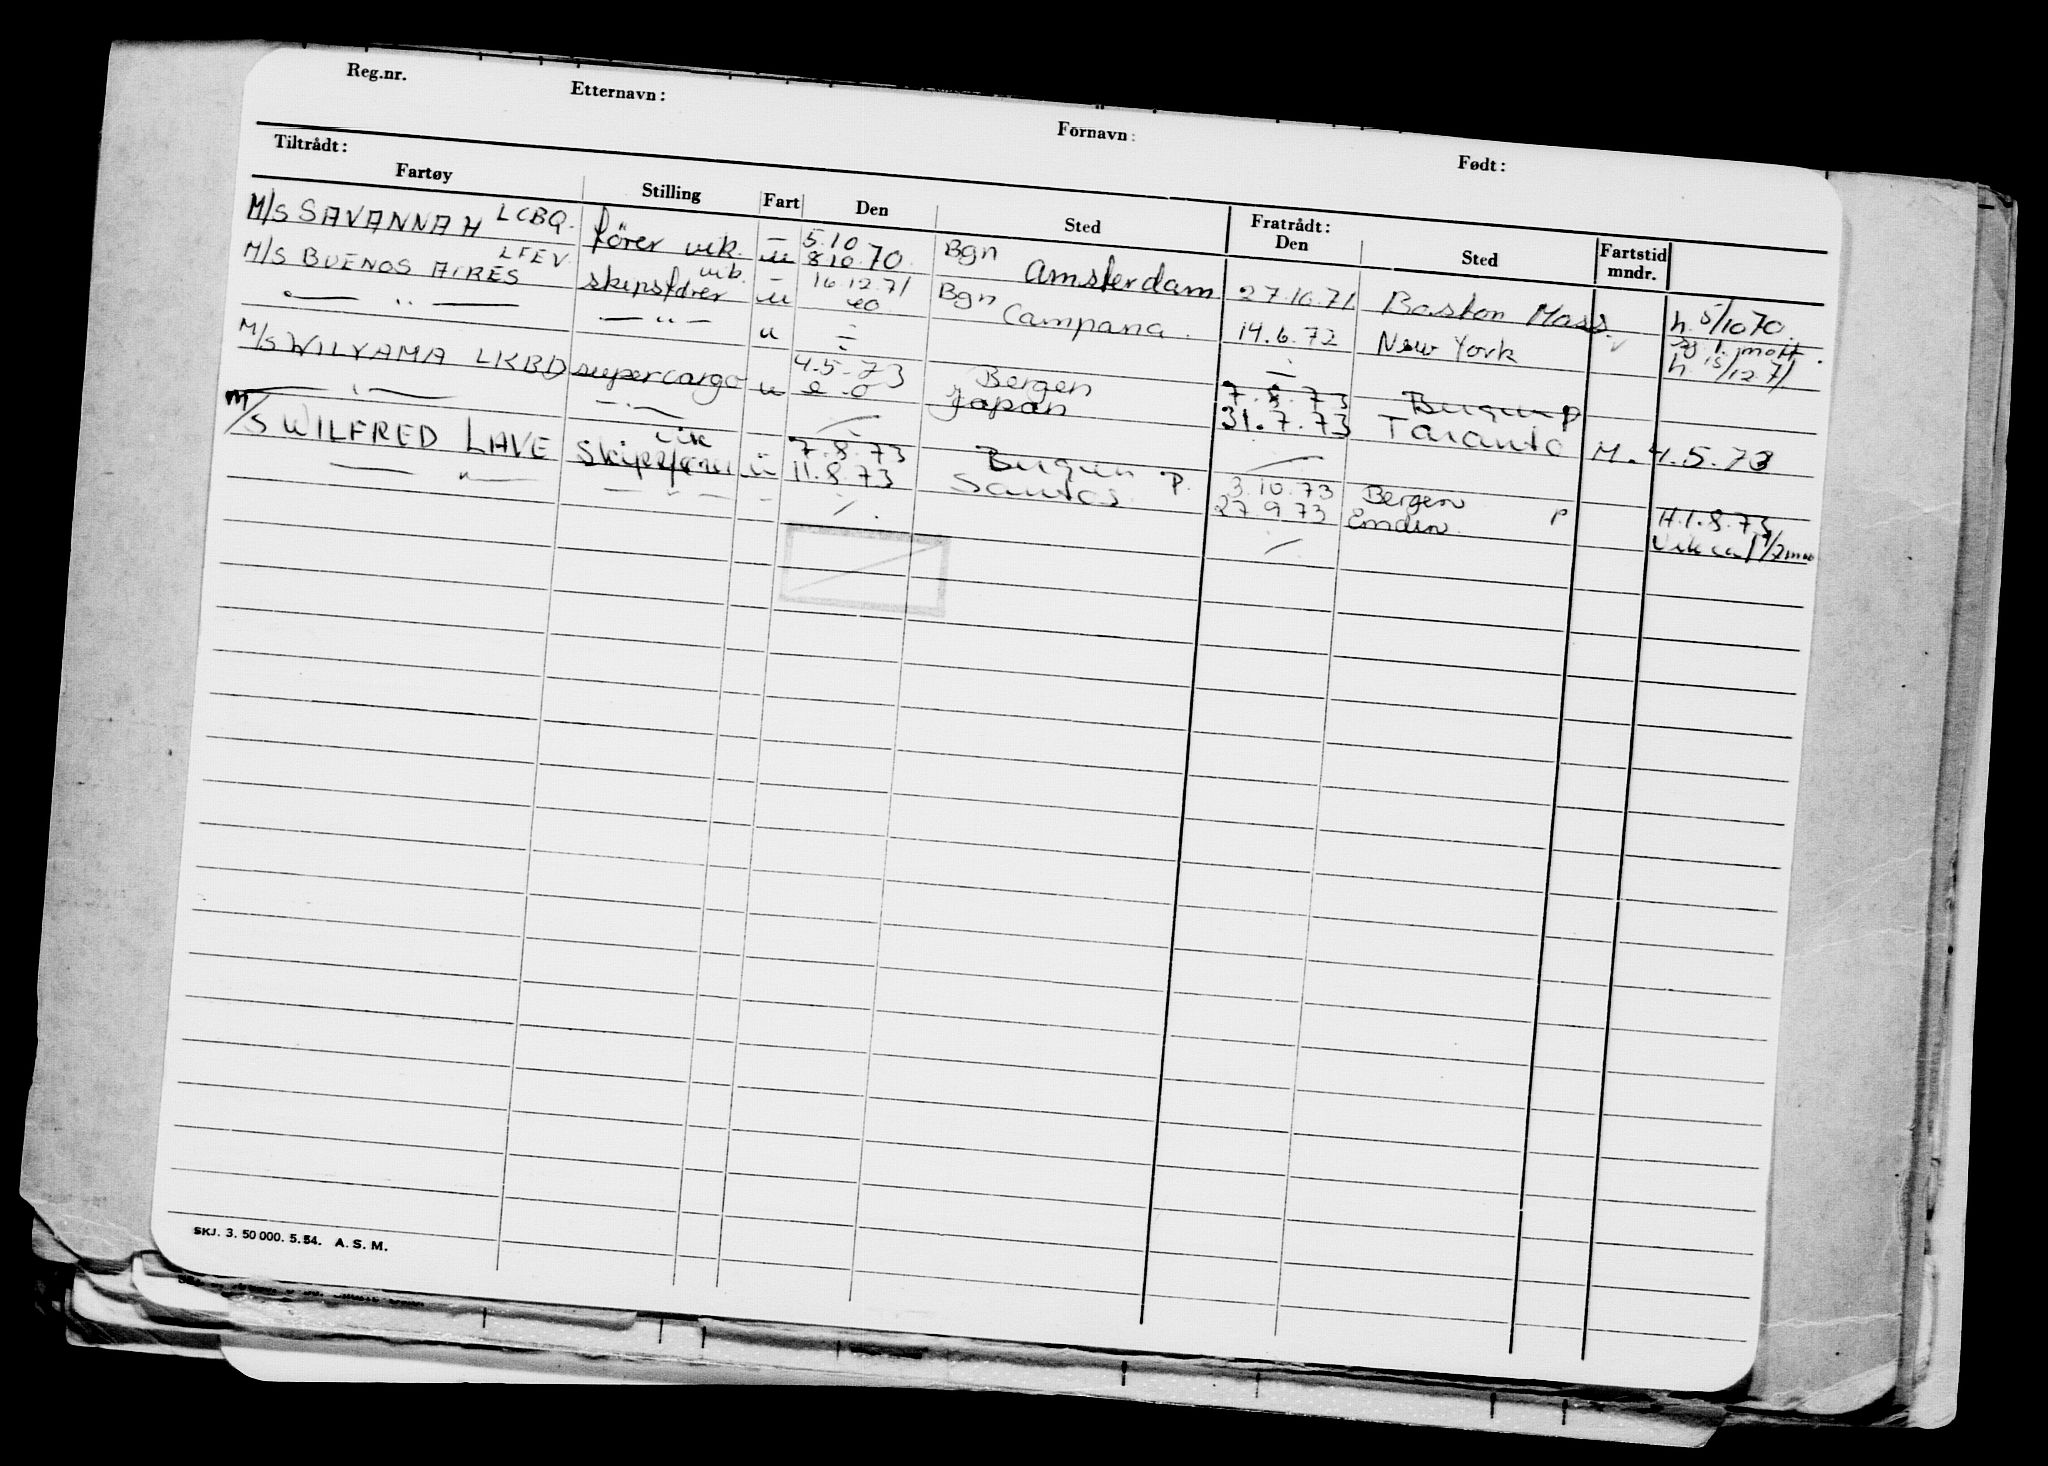 Reg.nr. Etternavn: Fornavn: Født:
Tiltrådt: Fratrådt:
Fartøy Stilling Fart Den Sted Den Sted Fartstid mndr.
M/S SAVANNAH LCBQ. fører vik. — 5.10 Bgn
u 8.10.70. Amsterdam 27.10.71 Boston Mass. h. 5/10 70.
M/S BUENOS AIRES LFEV. skipsfører vik. — 16.12.71 Bgn
— " — — " — u Campana. 14.6.72 New York h. 15/12 71
M/S WILYAMA LKBD supercargo u 4.5.73 Bergen 7.8.73 Bergen p
— " — — " — Japan 31.7.73 Taranto M. 4.5.73
M/S WILFRED LAVE Skipsfører vik u 7.8.73 Bergen P. 3.10.73 Bergen P H.1.8.73
— " — — " — 11.8.73 Santos. 27.9.73 Emden. Vik ca 1 1/2 mnd
SKJ. 3. 50 000. 5. 54. A. S. M.